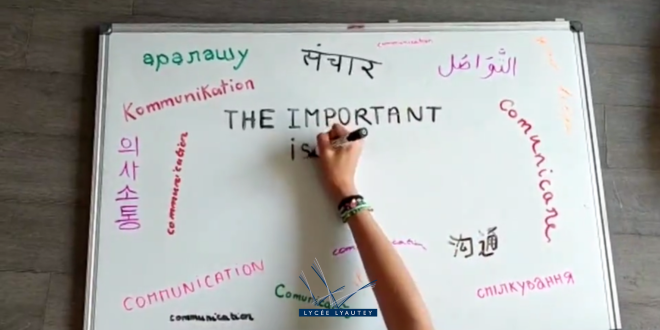 аралашу
संचार
communication
التَّوَاصُل
Kommunikation
THE IMPORTANT
is
의사소통
communication
Comunicare
communication
沟通
COMMUNICATION
спілкування
communication
LYCÉE LYAUTEY